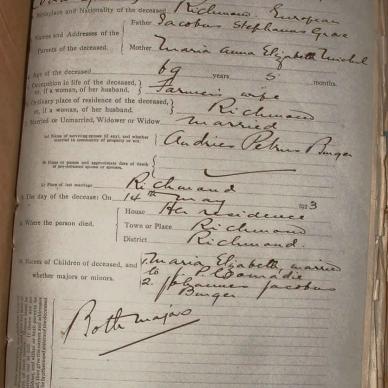 Birthplace and Nationality of the deceased Richmond, European
Names and Addresses of the Parents of the deceased.
Father Jacobus Stephanus
Mother Maria Anna Elizabeth
Age of the deceased 69 years 5 months.
Occupation in life of the deceased, or, if a woman, of her husband. Farmer's wife
Ordinary place of residence of the deceased, or, if a woman, of her husband. Richmond
Married or Unmarried, Widower or Widow Married
(a) Name of surviving spouse (if any), and whether married in community of property or not. Andries Petrus Burger
(b) Name or names and approximate date of death of pre-deceased spouse or spouses.
(c) Place of last marriage Richmond
The day of the decease: On 14th May 1923
Where the person died.
House Her residence
Town or Place Richmond
District Richmond.
Names of Children of deceased, and whether majors or minors.
Maria Elizabeth, married
to
2. Johannes Jacobus
Burger
Both majors